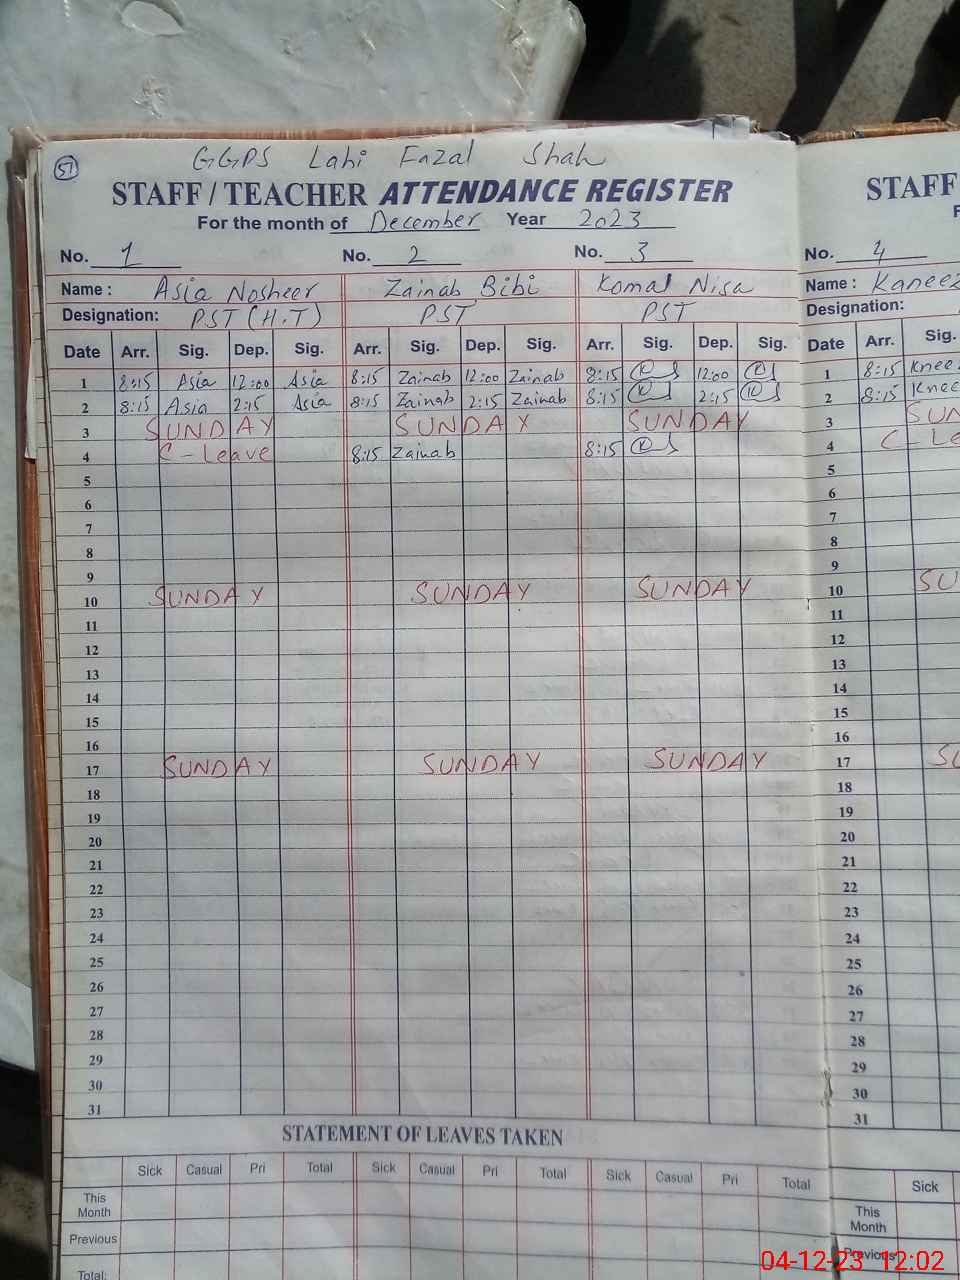 51
GGPS Lahi Fazal Shah
STAFF / TEACHER ATTENDANCE REGISTER
For the month of December Year 2023
No. 1 No. 2 No. 3
Name : Asia Nosheer Zainab Bibi Komal Nisa
Designation: PST (H.T) PST PST
Date Arr. Sig. Dep. Sig. Arr. Sig. Dep. Sig. Arr. Sig. Dep. Sig.
1 8:15 Asia 12:00 Asia 8:15 Zainab 12:00 Zainab 8:15 12:00
2 8:15 Asia 2:15 Asia 8:15 Zainab 2:15 Zainab 8:15 2:15
3 SUNDAY SUNDAY SUNDAY
4 C - Leave 8:15 Zainab 8:15
5
6
7
8
9
10 SUNDAY SUNDAY SUNDAY
11
12
13
14
15
16
17 SUNDAY SUNDAY SUNDAY
18
19
20
21
22
23
24
25
26
27
28
29
30
31
STATEMENT OF LEAVES TAKEN
Sick Casual Pri Total Sick Casual Pri Total Sick Casual Pri Total
This Month
Previous
Total:
STAFF
F
No. 4
Name : Kaneez
Designation:
Date Arr. Sig.
1 8:15 Knee
2 8:15 Knee
3 SUN
4 C - Le
5
6
7
8
9
10 SU
11
12
13
14
15
16
17 SU
18
19
20
21
22
23
24
25
26
27
28
29
30
31
Sick
This Month
Previous
04-12-23 12:02